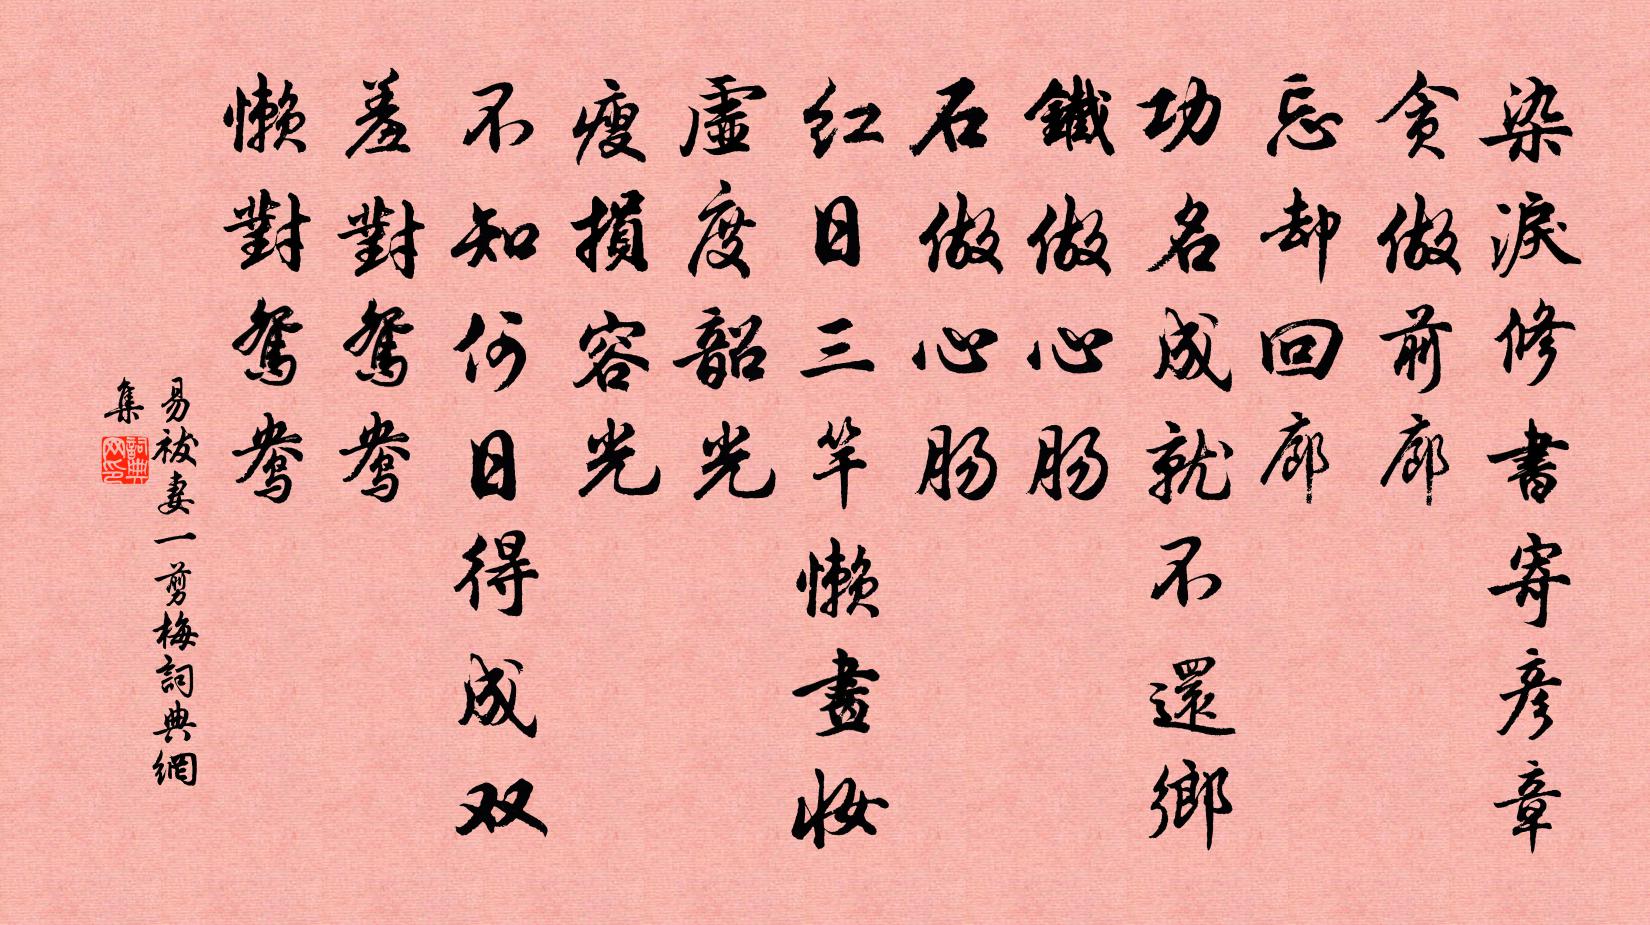 染淚修書寄彥章
貪做前廊
忘却回廊
功名成就不還鄉
鐵做心肠
石做心肠
红日三竿懒畫妝
虛度韶光
瘦損容光
不知何日得成双
羞對鴛鴦
懒對鴛鴦
易祓妻一剪梅詞典網
集
詞典
网印